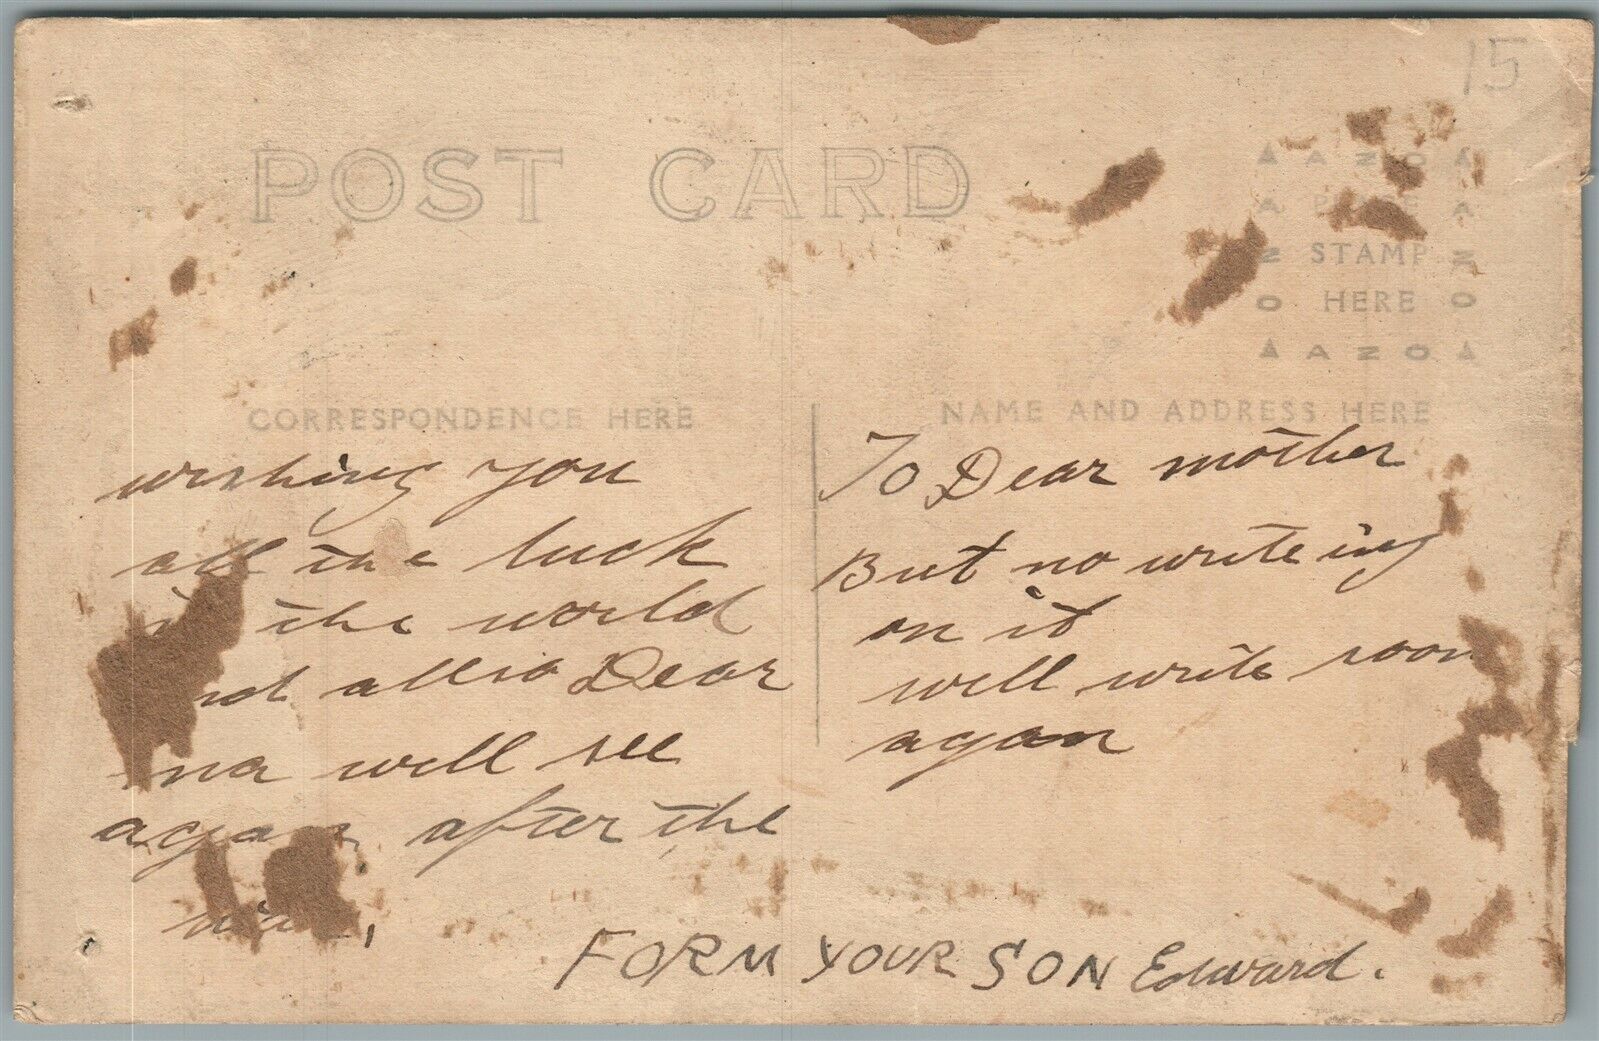 15
POST CARD
AZO
PLACE
STAMP
HERE
AZO
CORRESPONDENCE HERE
wishing you
all the luck
in the world
Dear
ma will see
again after the
NAME AND ADDRESS HERE
To Dear mother
But no writeing
on it
will write soon
again
FORM YOUR SON Edward.